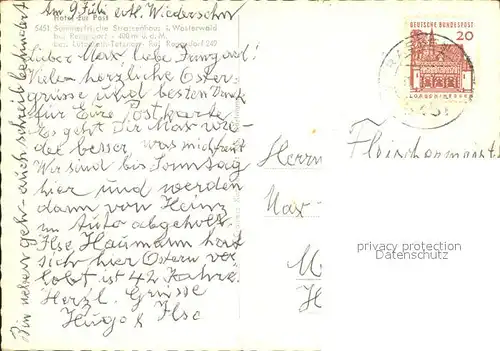 Am 9 Juli evtl. Wiedersehn
Hotel zur Post
5451 Sommerfrische Strassenhaus i. Westerwald
Bes. Lütgesheim-Tetzner - Ruf Rengsdorf 249
lieber Max, liebe Irmgard!
Vielen herzliche Oster
grüsse und besten Dank
für Eure Postkarte
Es geht Dir Max wie-
der besser, was mich freut
Wir sind bis Sonntag
hier und werden
dann von Heinz
im Auto abgeholt
Ilse Haumann hat
sich hier Ostern ver
lobt ist 42 Jahre.
Herzl. Grüsse
Hugo & Ilse
Bin nehr geh- auch schreib behindert
DEUTSCHE BUNDESPOST
20
Herrn
Fleischermeister
Max
privacy protection
Datenschutz